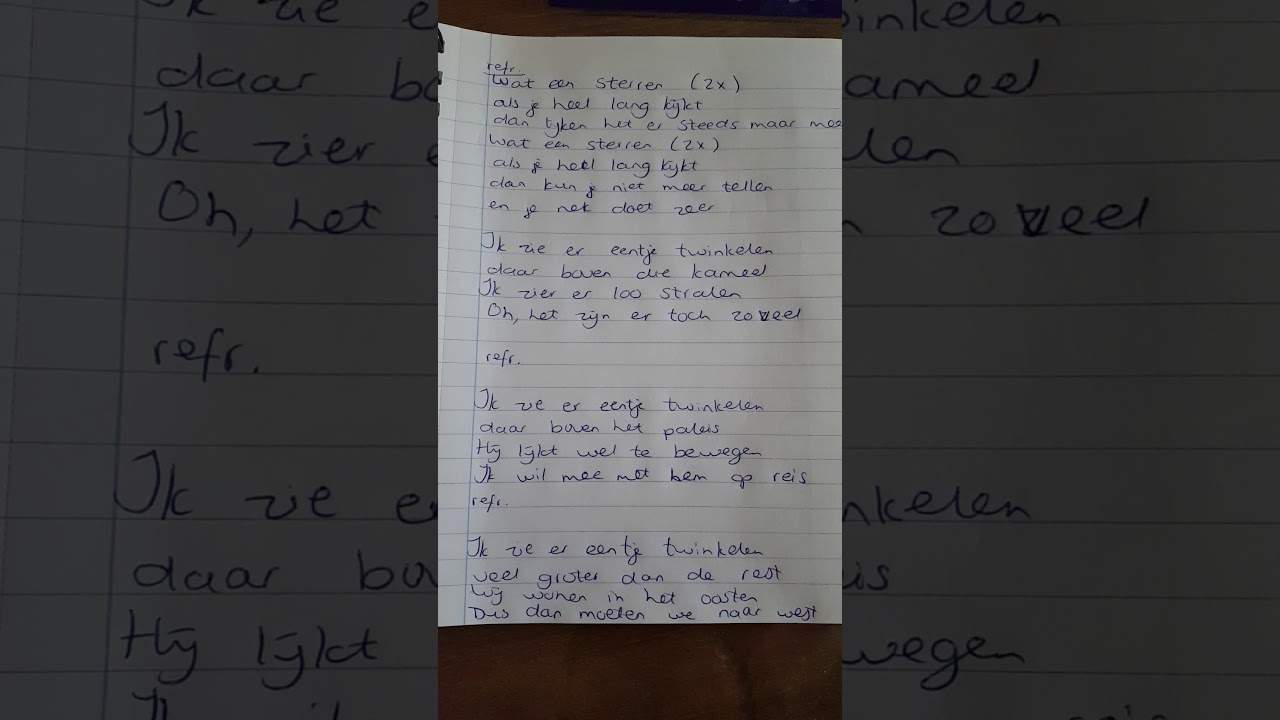 refr.
Wat een sterren (2x)
als je heel lang kijkt
dan lijken het er steeds maar mee
Wat een sterren (2x)
als je heel lang kijkt
dan kun je niet meer tellen
en je nek doet zeer
Ik zie er eentje twinkelen
daar boven die kameel
Ik zier er 100 stralen
Oh, het zijn er toch zoveel
refr.
Ik zie er eentje twinkelen
daar boven het paleis
Hij lijkt wel te bewegen
Ik wil mee met hem op reis
refr.
Ik zie er eentje twinkelen
veel groter dan de rest
Wij wonen in het oosten
Dus dan moeten we naar west